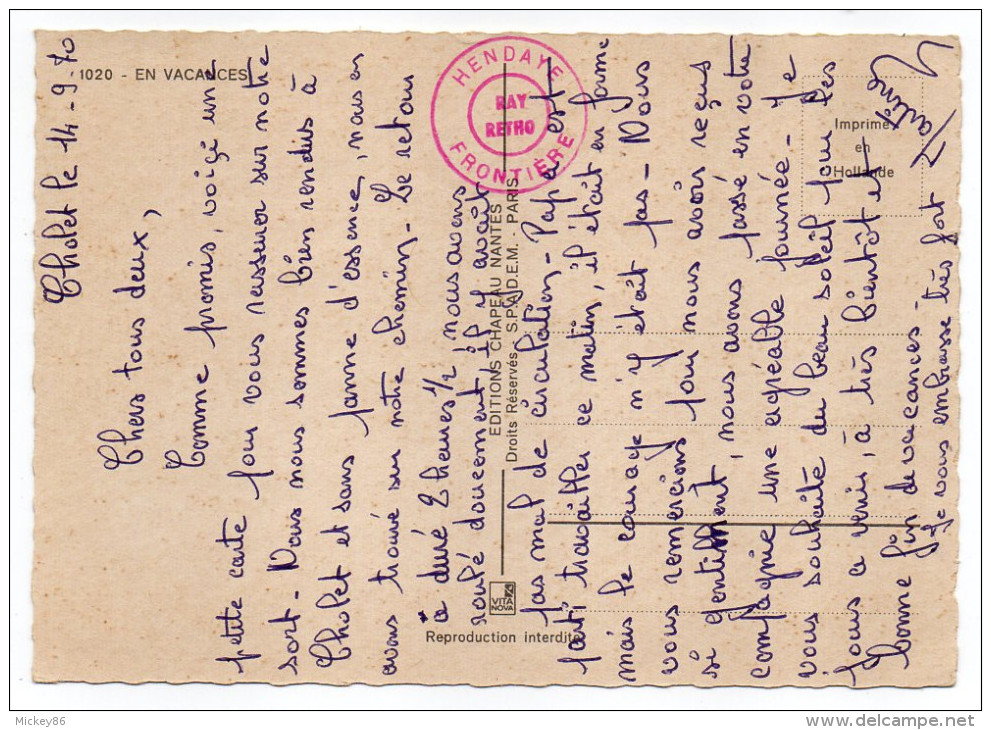 Cholet le 14-9-70
Chers tous deux,
Comme promis, voiçi une
petite carte pour vous rassurer sur notre
sort - Nous nous sommes bien rendus à
Cholet et sans panne d'essence, nous en
avons trouvé sur notre chemin - Le retour
a duré 2 heures 1/2 nous avons
roulé doucement il y avait
pas mal de circulation - Papa est
parti travailler ce matin, il était en forme
mais le courage n'y était pas - Nous
vous remercions pour nous avoir reçus
si gentillment, nous avons passé en votre
compagnie une agréable journée - Je
vous souhaite du beau soleil pour les
jours a venir, à très bientôt et
bonne fin de vacances -
Je vous embrasse très fort
Martine
1020 - EN VACANCES
HENDAYE
RAY
RETHO
FRONTIÈRE
Imprimé
en
Hollande
EDITIONS CHAPEAU NANTES
Droits Réservés - S.P.A.D.E.M. - PARIS
VITA
NOVA
Reproduction interdite
Mickey86
delcampe.net